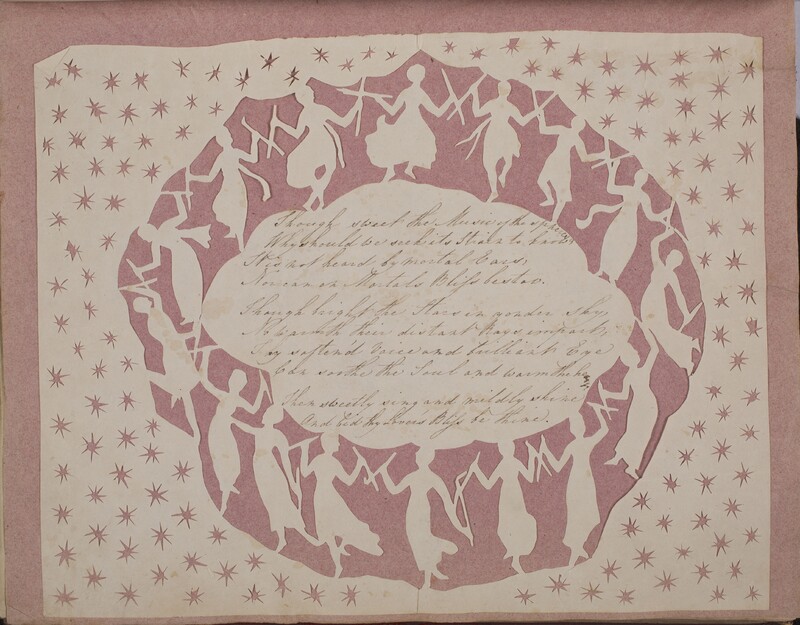 Though sweet the Music of the spheres
Why should we seek its strain to know
It is not heard by mortal Ears,
Nor can on Mortals Bliſs bestow.
Though bright the Stars in yonder sky,
No warmth their distant Rays impart,
Thy soften'd Voice and brilliant Eye
Can soothe the Soul and warm the heart
Then sweetly sing and mildly shine
And bid thy Lovers Bliſs be thine.